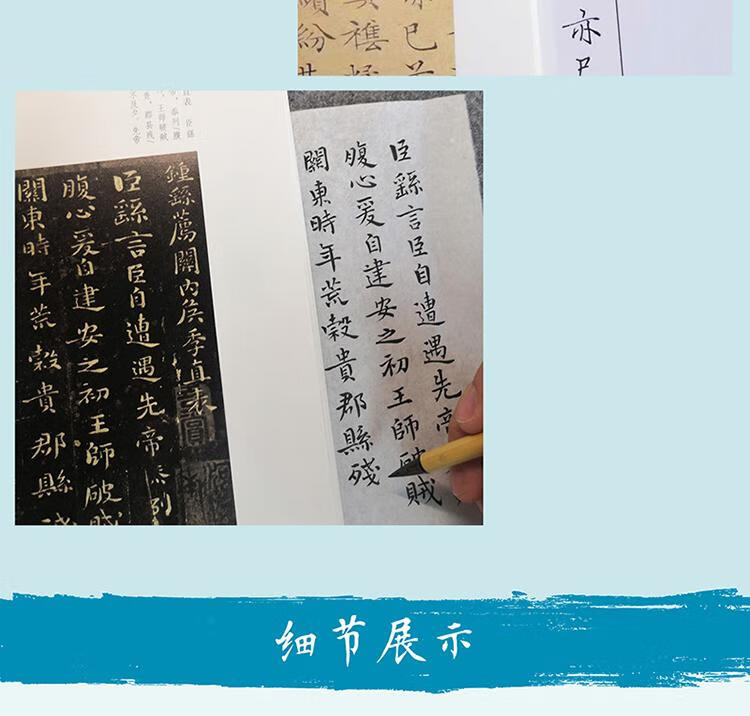 亦巳
紛
亦巳
鍾繇薦關内侯季直表
臣繇言臣自遭遇先帝忝列
腹心爰自建安之初王師破賊
關東時年荒穀貴郡縣殘
臣繇言臣自遭遇先帝
腹心爰自建安之初王師破賊
關東時年荒穀貴郡縣殘
细节展示